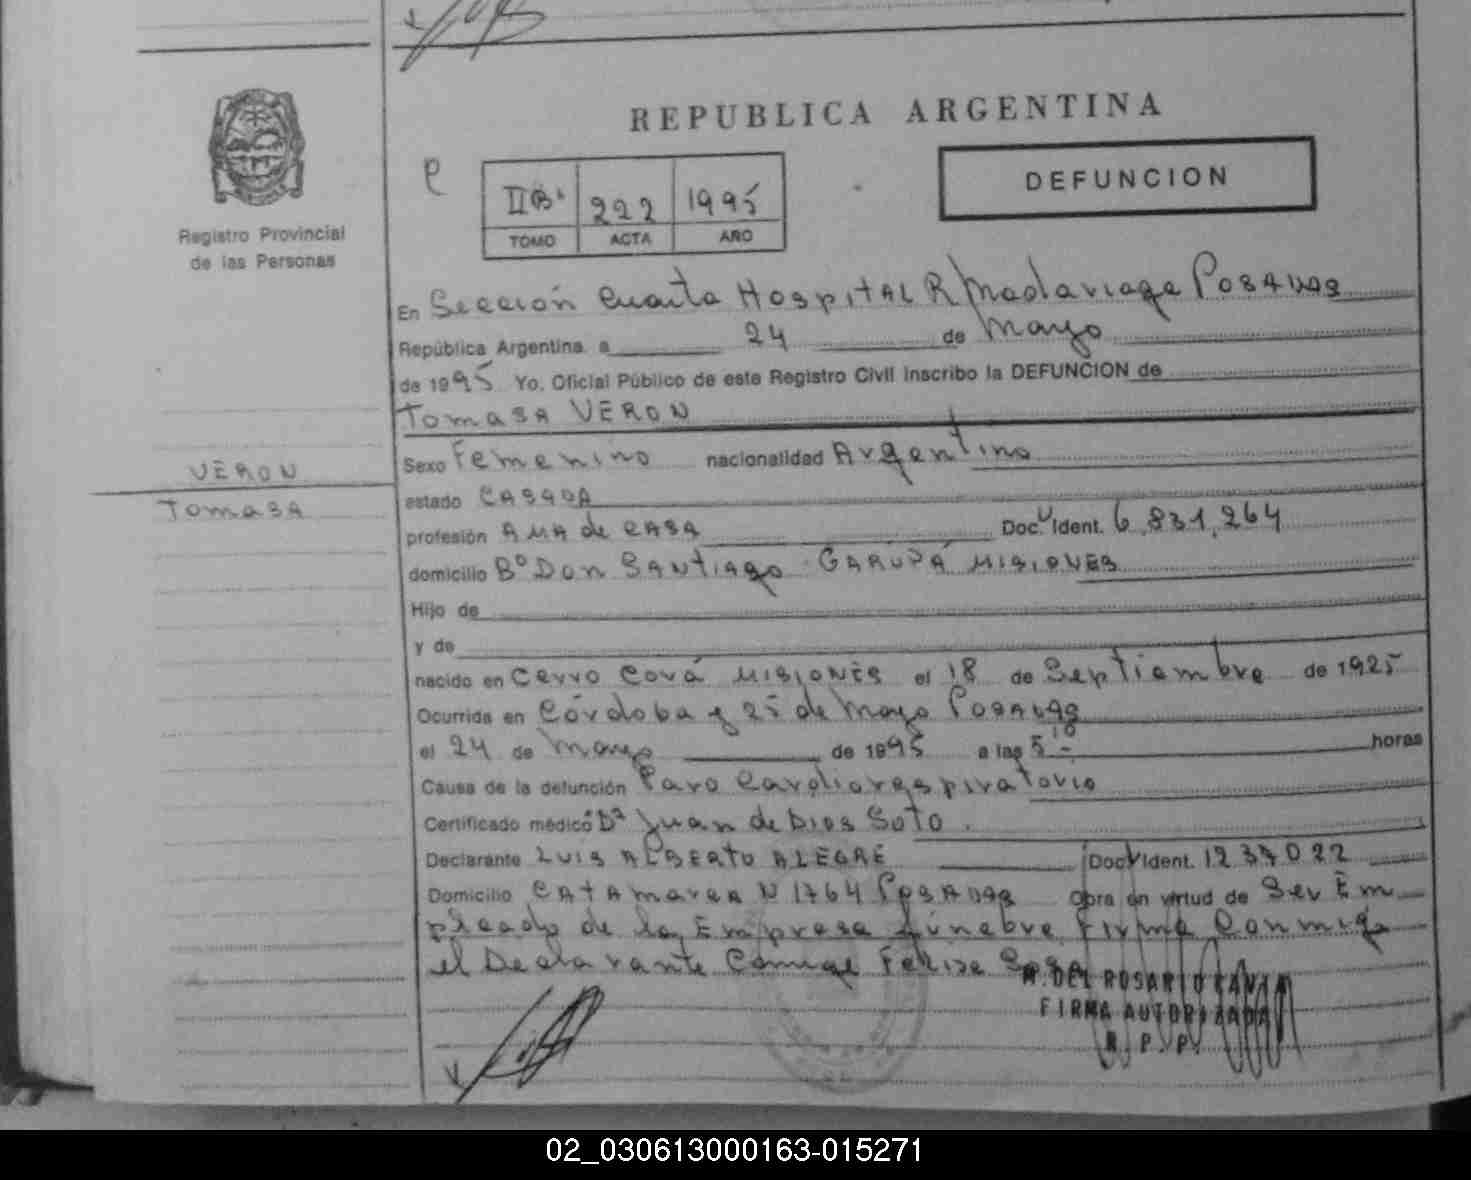 REPUBLICA ARGENTINA
DEFUNCION
222 1995
TOMO ACTA AÑO
Registro Provincial
de las Personas
En Sección Cuarta Hospital R Madariaga Posadas
República Argentina a 24 de Mayo
de 1995 Yo, Oficial Público de este Registro Civil inscribo la DEFUNCION de
Tomasa VERON
VERON
Tomasa
Sexo Femenino nacionalidad Argentino
estado CASADA
profesión AMA de CASA Doc. Ident. 6.831.264
domicilio Bº Don Santiago GARUPÁ MISIONES
Hijo de
y de
nacido en Cerro Corá MISIONES el 18 de Septiembre de 1925
Ocurrida en Córdoba y 25 de Mayo Posadas
el 24 de Mayo de 1995 a las 5 10 horas
Causa de la defunción Paro Cardiorespiratorio
Certificado médico Dr Juan de Dios Soto.
Declarante LUIS ALBERTO ALEGRE Doc. Ident. 1237022
Domicilio CATAMARCA N 1764 POSADAS Obra en virtud de Ser Em
pleado de la Empresa fúnebre Firma Conmigo
el Declarante Conyuge Felipe Sosa
M. DEL ROSARIO
FIRMA AUTORIZADA
R. P. P.
02_030613000163-015271